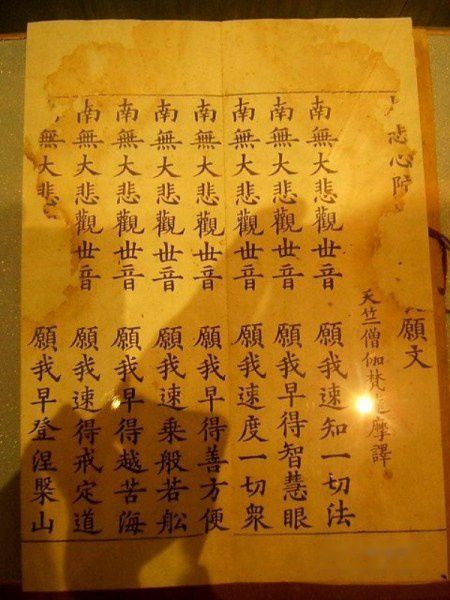 悲心陀 願文
天竺僧伽梵摩譯
南無大悲觀世音 願我速知一切法
南無大悲觀世音 願我早得智慧眼
南無大悲觀世音 願我速度一切衆
南無大悲觀世音 願我早得善方便
南無大悲觀世音 願我速乘般若舩
南無大悲觀世音 願我早得越苦海
南無大悲觀世音 願我速得戒定道
無大悲觀世音 願我早登涅槃山